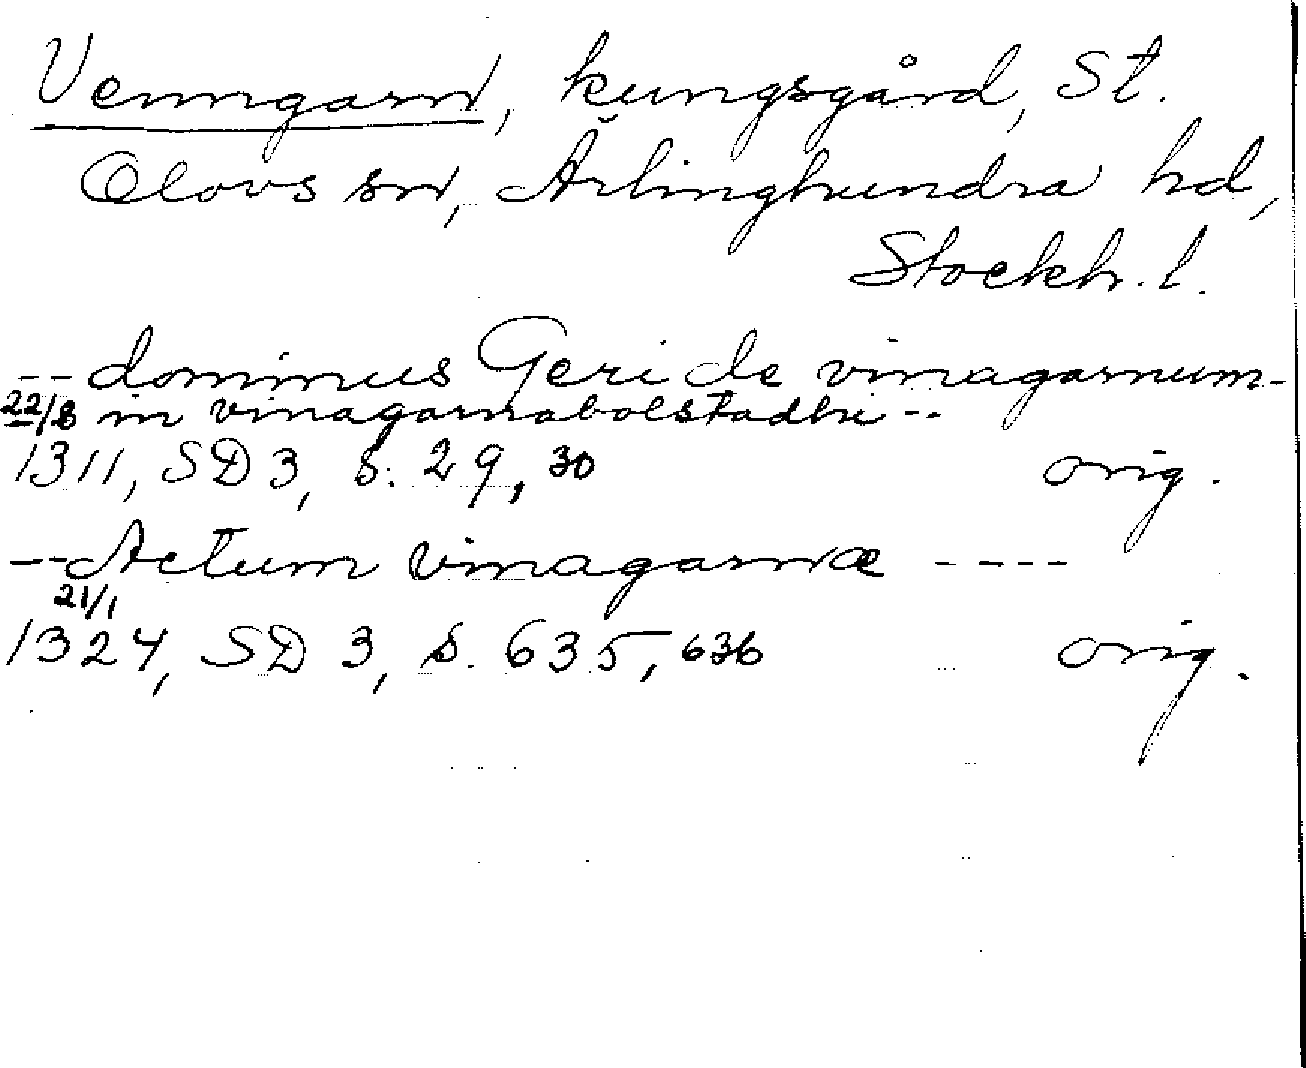 Venngarn, kungsgård, St.
Olovs sn, Ärlinghundra hd,
Stockh. l.
-- dominus Geri de vinagarnum -
22/8 in vinagarnabolstadhi --
1311, SD 3, s. 29, 30 orig.
-- Actum vinagarnæ ----
21/1
1324, SD 3, s. 635, 636 orig.